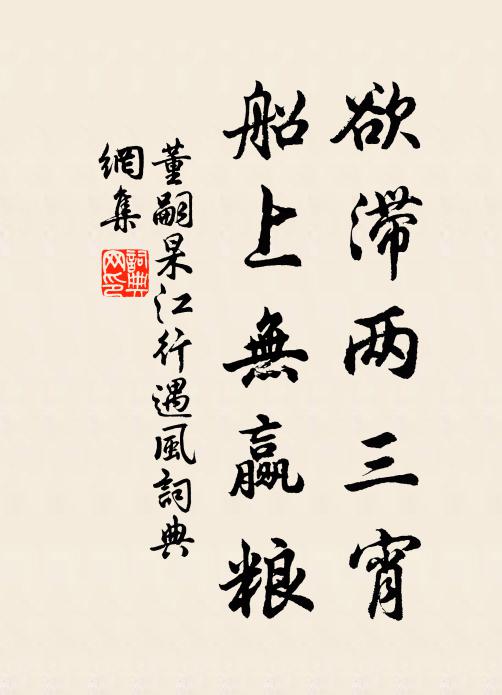 欲滞两三宵
船上無贏粮
董嗣杲江行遇風詞典
網集
詞典網印